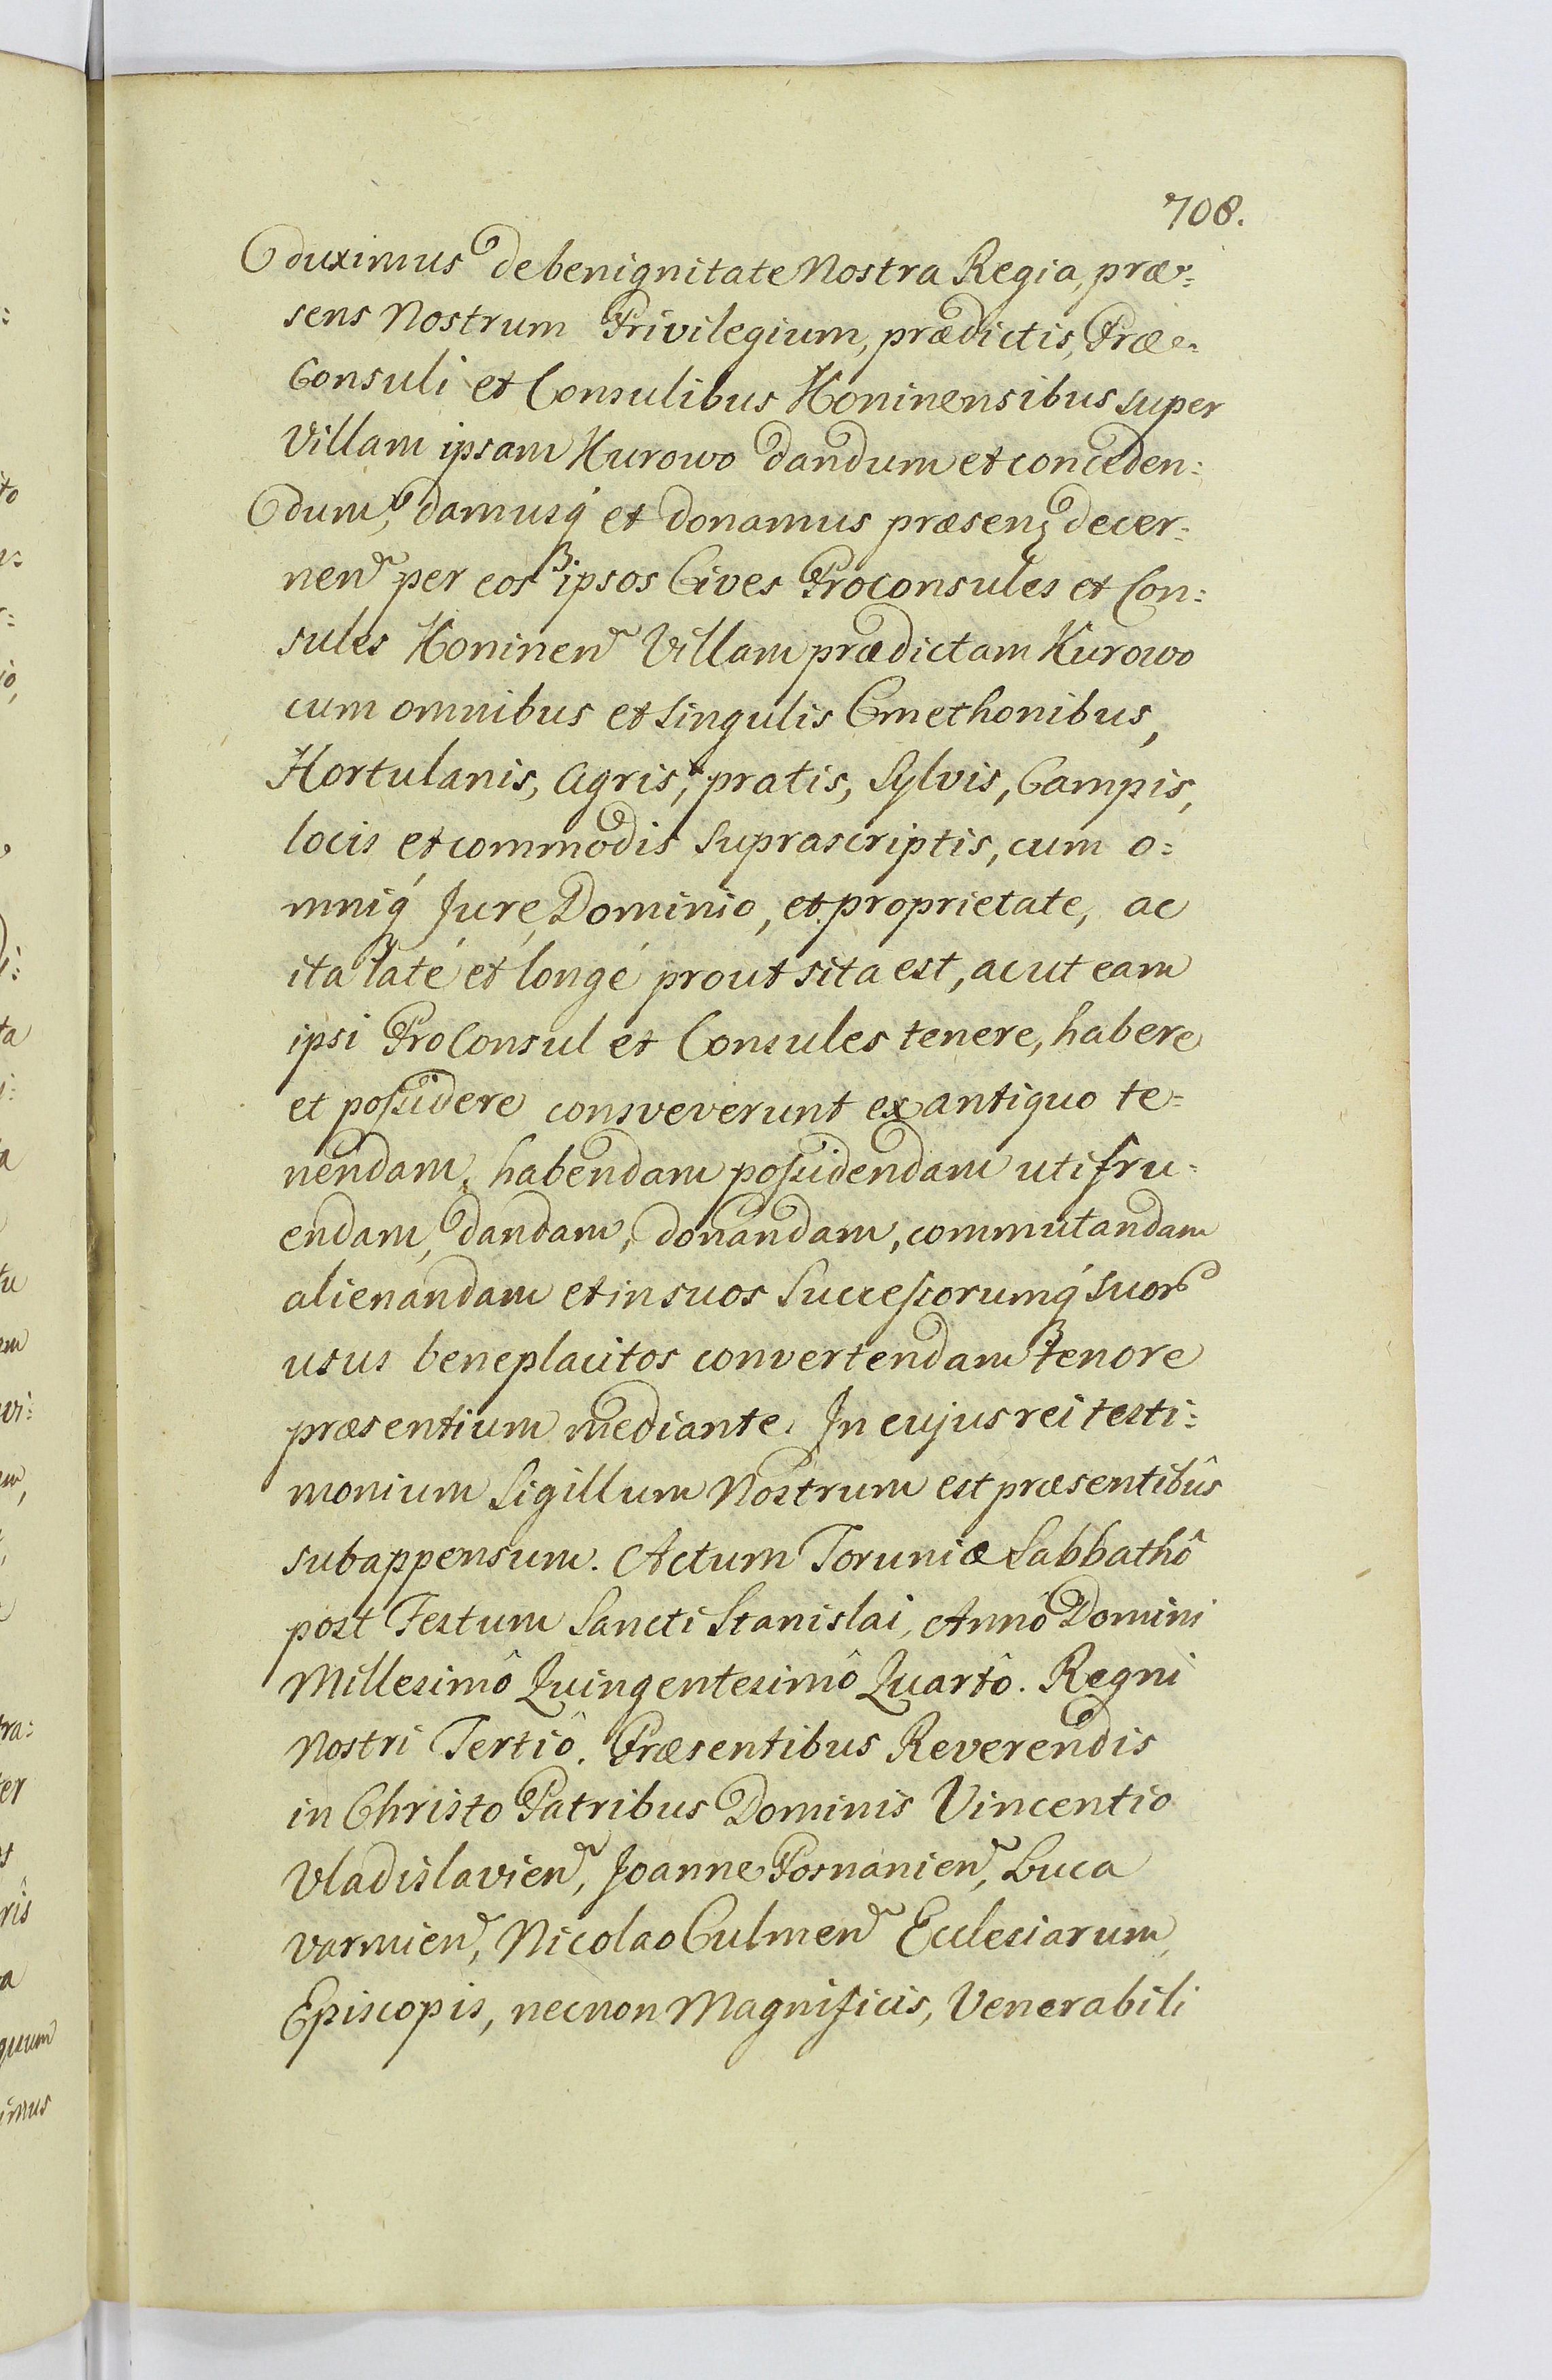 708.
duximus de benignitate Nostra Regia, præ=
sens Nostrum Privilegium, prædictis, Præ=
Consuli et Consulibus Koninensibus super
Villam ipsam Kurowo dandum et conceden:
dum, damusq́ et donamus præsenꝫ decer:
neñ per eosꝫ ipsos Cives Proconsules et Con:
sules Konineñ Villam prædictam Kurowo
cum omnibus et singulis Cmethonibus,
Hortulanis, Agris, pratis, Sylvis, Campis,
locis et commodis suprascriptis, cum o:
mniq́ Jure, Dominio, et proprietate, ac
ita laté et longé prout sita est, ac ut eam
ipsi ProConsul et Consules tenere, habere
et possidere consveverunt ex antiquo te=
nendam, habendam possidendam utifru=
endam, dandam, donandam, commutandam
alienandam et in suos Successorumq́ suor
usus beneplacitos convertendam tenore
præsentium mediante. In cujus rei testi:
monium Sigillum Nostrum est præsentibûs
subappensum. Actum Toruniæ Sabbathô
post Festum Sancti Stanislai, Annô Domini
Millesimô Quingentesimô Quartô. Regni
Nostri Tertiô. Præsentibus Reverendis
in Christo Patribus Dominis Vincentio
Vladislavieñ, Joanne Posnanieñ, Luca
Varmieñ, Nicolao Culmeñ Ecclesiarum
Episcopis, necnon Magnificis, Venerabili